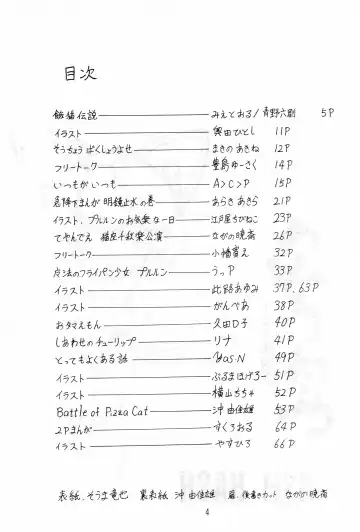 目次
飯猫伝説 みえとおる/青野六剣 5P
イラスト 奥田ひとし 11P
そうちょう ばくしょうよせ まきの あきね 12P
フリートーク 豊島ゆーさく 14P
いつもが いつも A>C>P 15P
急降下まんが 明鏡止水の巻 あらき あきら 21P
イラスト、プルルンのお気楽な一日 江戸屋ちびねこ 23P
てやんでえ 猫座千秋楽公演 ながの暁斎 26P
フリートーク 小幡寛え 32P
魔法のフライパン少女 プルルン うっP 33P
イラスト 比路あゆみ 37P、63P
イラスト がんぺあ 38P
おタマえもん 久田D子 40P
しあわせのチューリップ リナ 41P
とってもよくある話 YaS.N 49P
イラスト ぶるまほげろー 51P
イラスト 横山ちちゃ 52P
Battle of Pizza Cat 沖 由佳雄 53P
2Pまんが すくろおる 64P
イラスト やすひろ 66P
表紙、そうま竜也 裏表紙 沖 由佳雄 扉、後書きカット ながの暁斎
4